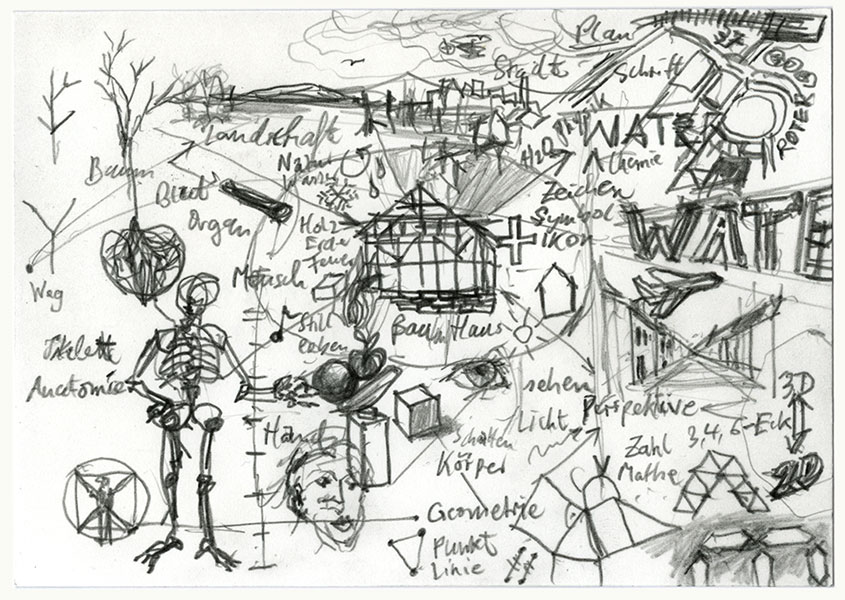 Plan
Stadt
Schrift
Landschaft
WATER
ROTER
Physik
H2O
Chemie
Baum
Natur
Wasser
Blatt
Organ
Zeichen
Symbol
ikon
Holz
Erde
Feuer
WATE
Weg
Mensch
Still
leben
Baum Haus
Skelett
Anatomie
sehen
Licht
Perspektive
3D
2D
Hand
Schatten
Körper
Zahl 3,4,6-Eck
Mathe
Geometrie
Punkt
Linie